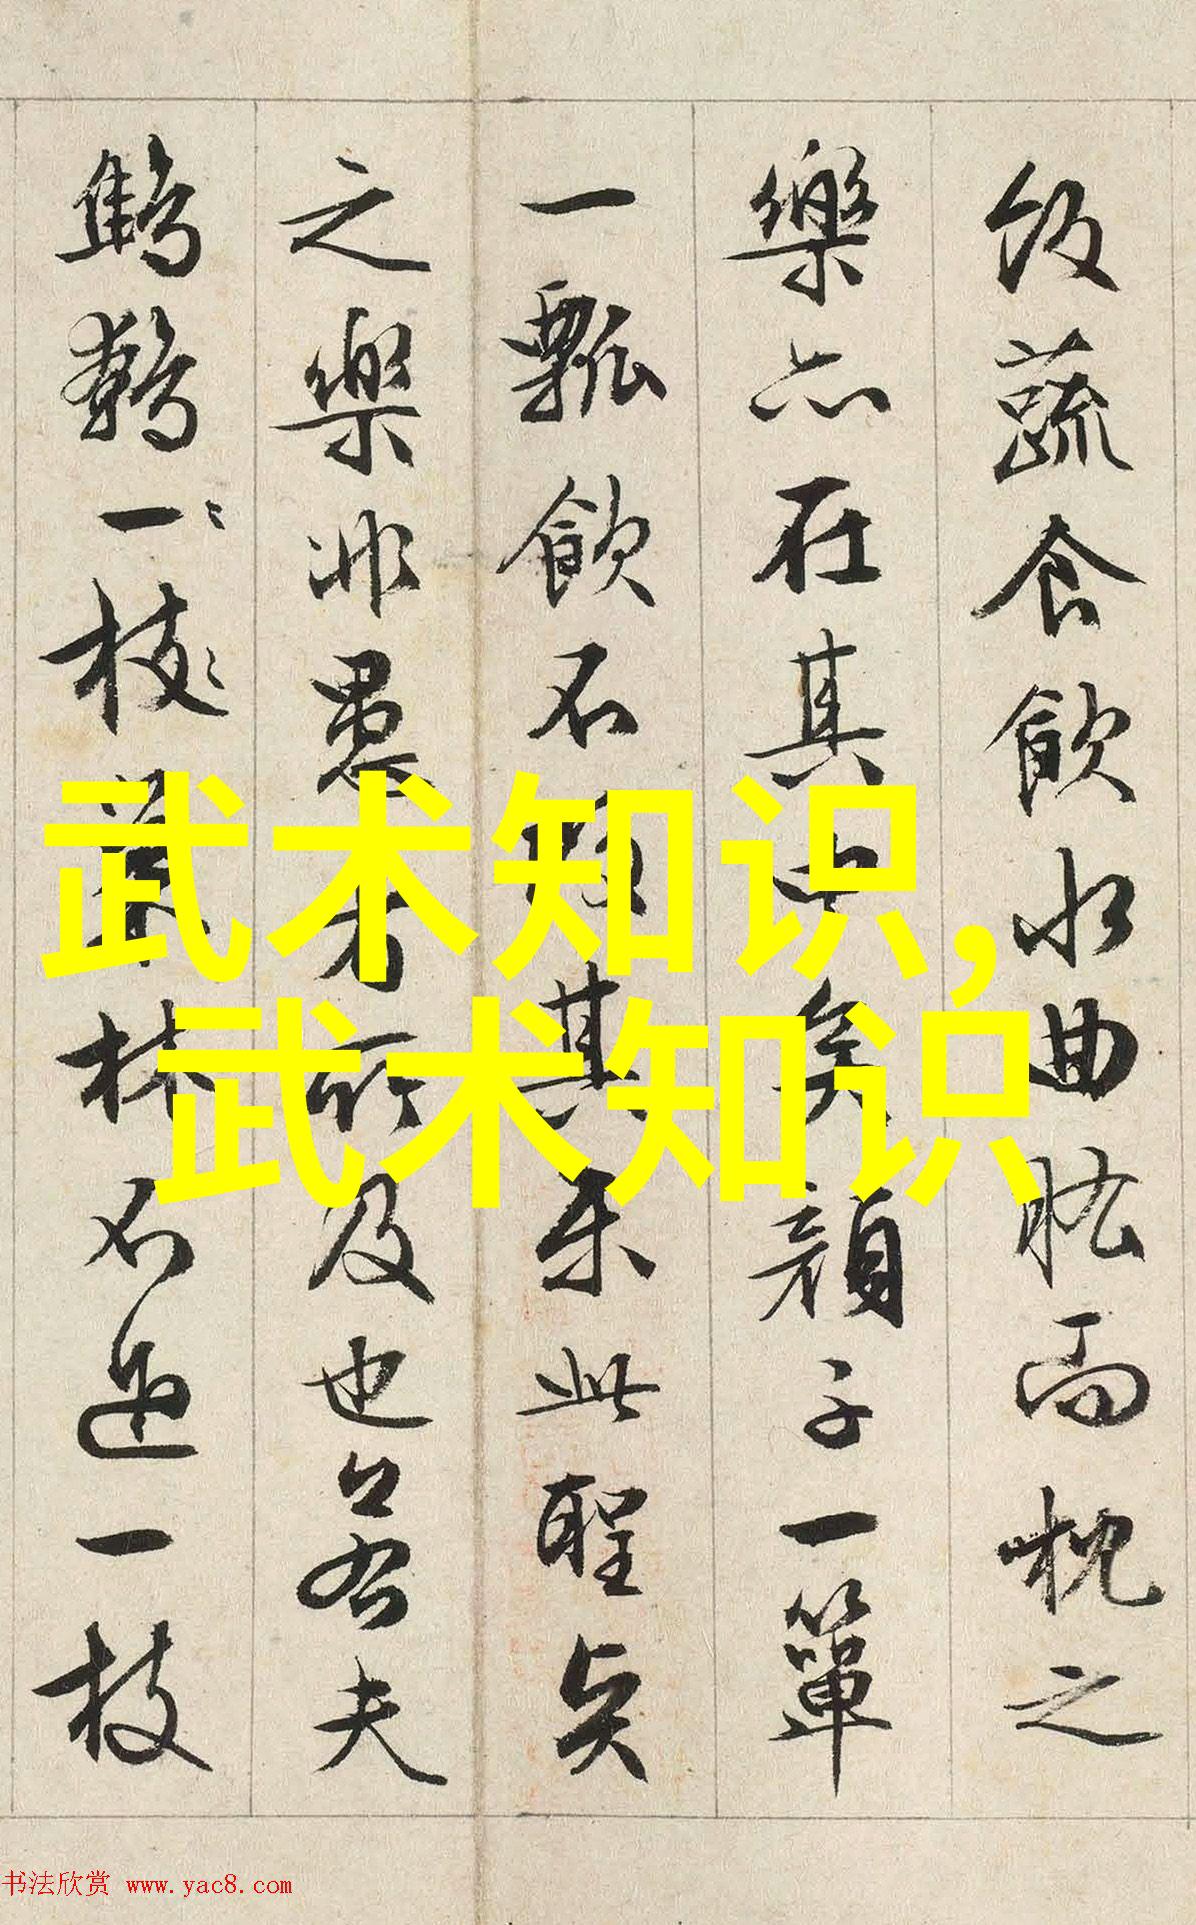 飯蔬食飲水曲肱而枕之
樂亦在其中矣顏子一簞
一瓢飲不改其樂此聖賢
之樂非愚者所及也若夫
鷦鷯一枝巢林不過一枝
武术知识,
武术知识
书法欣赏 www.yac8.com